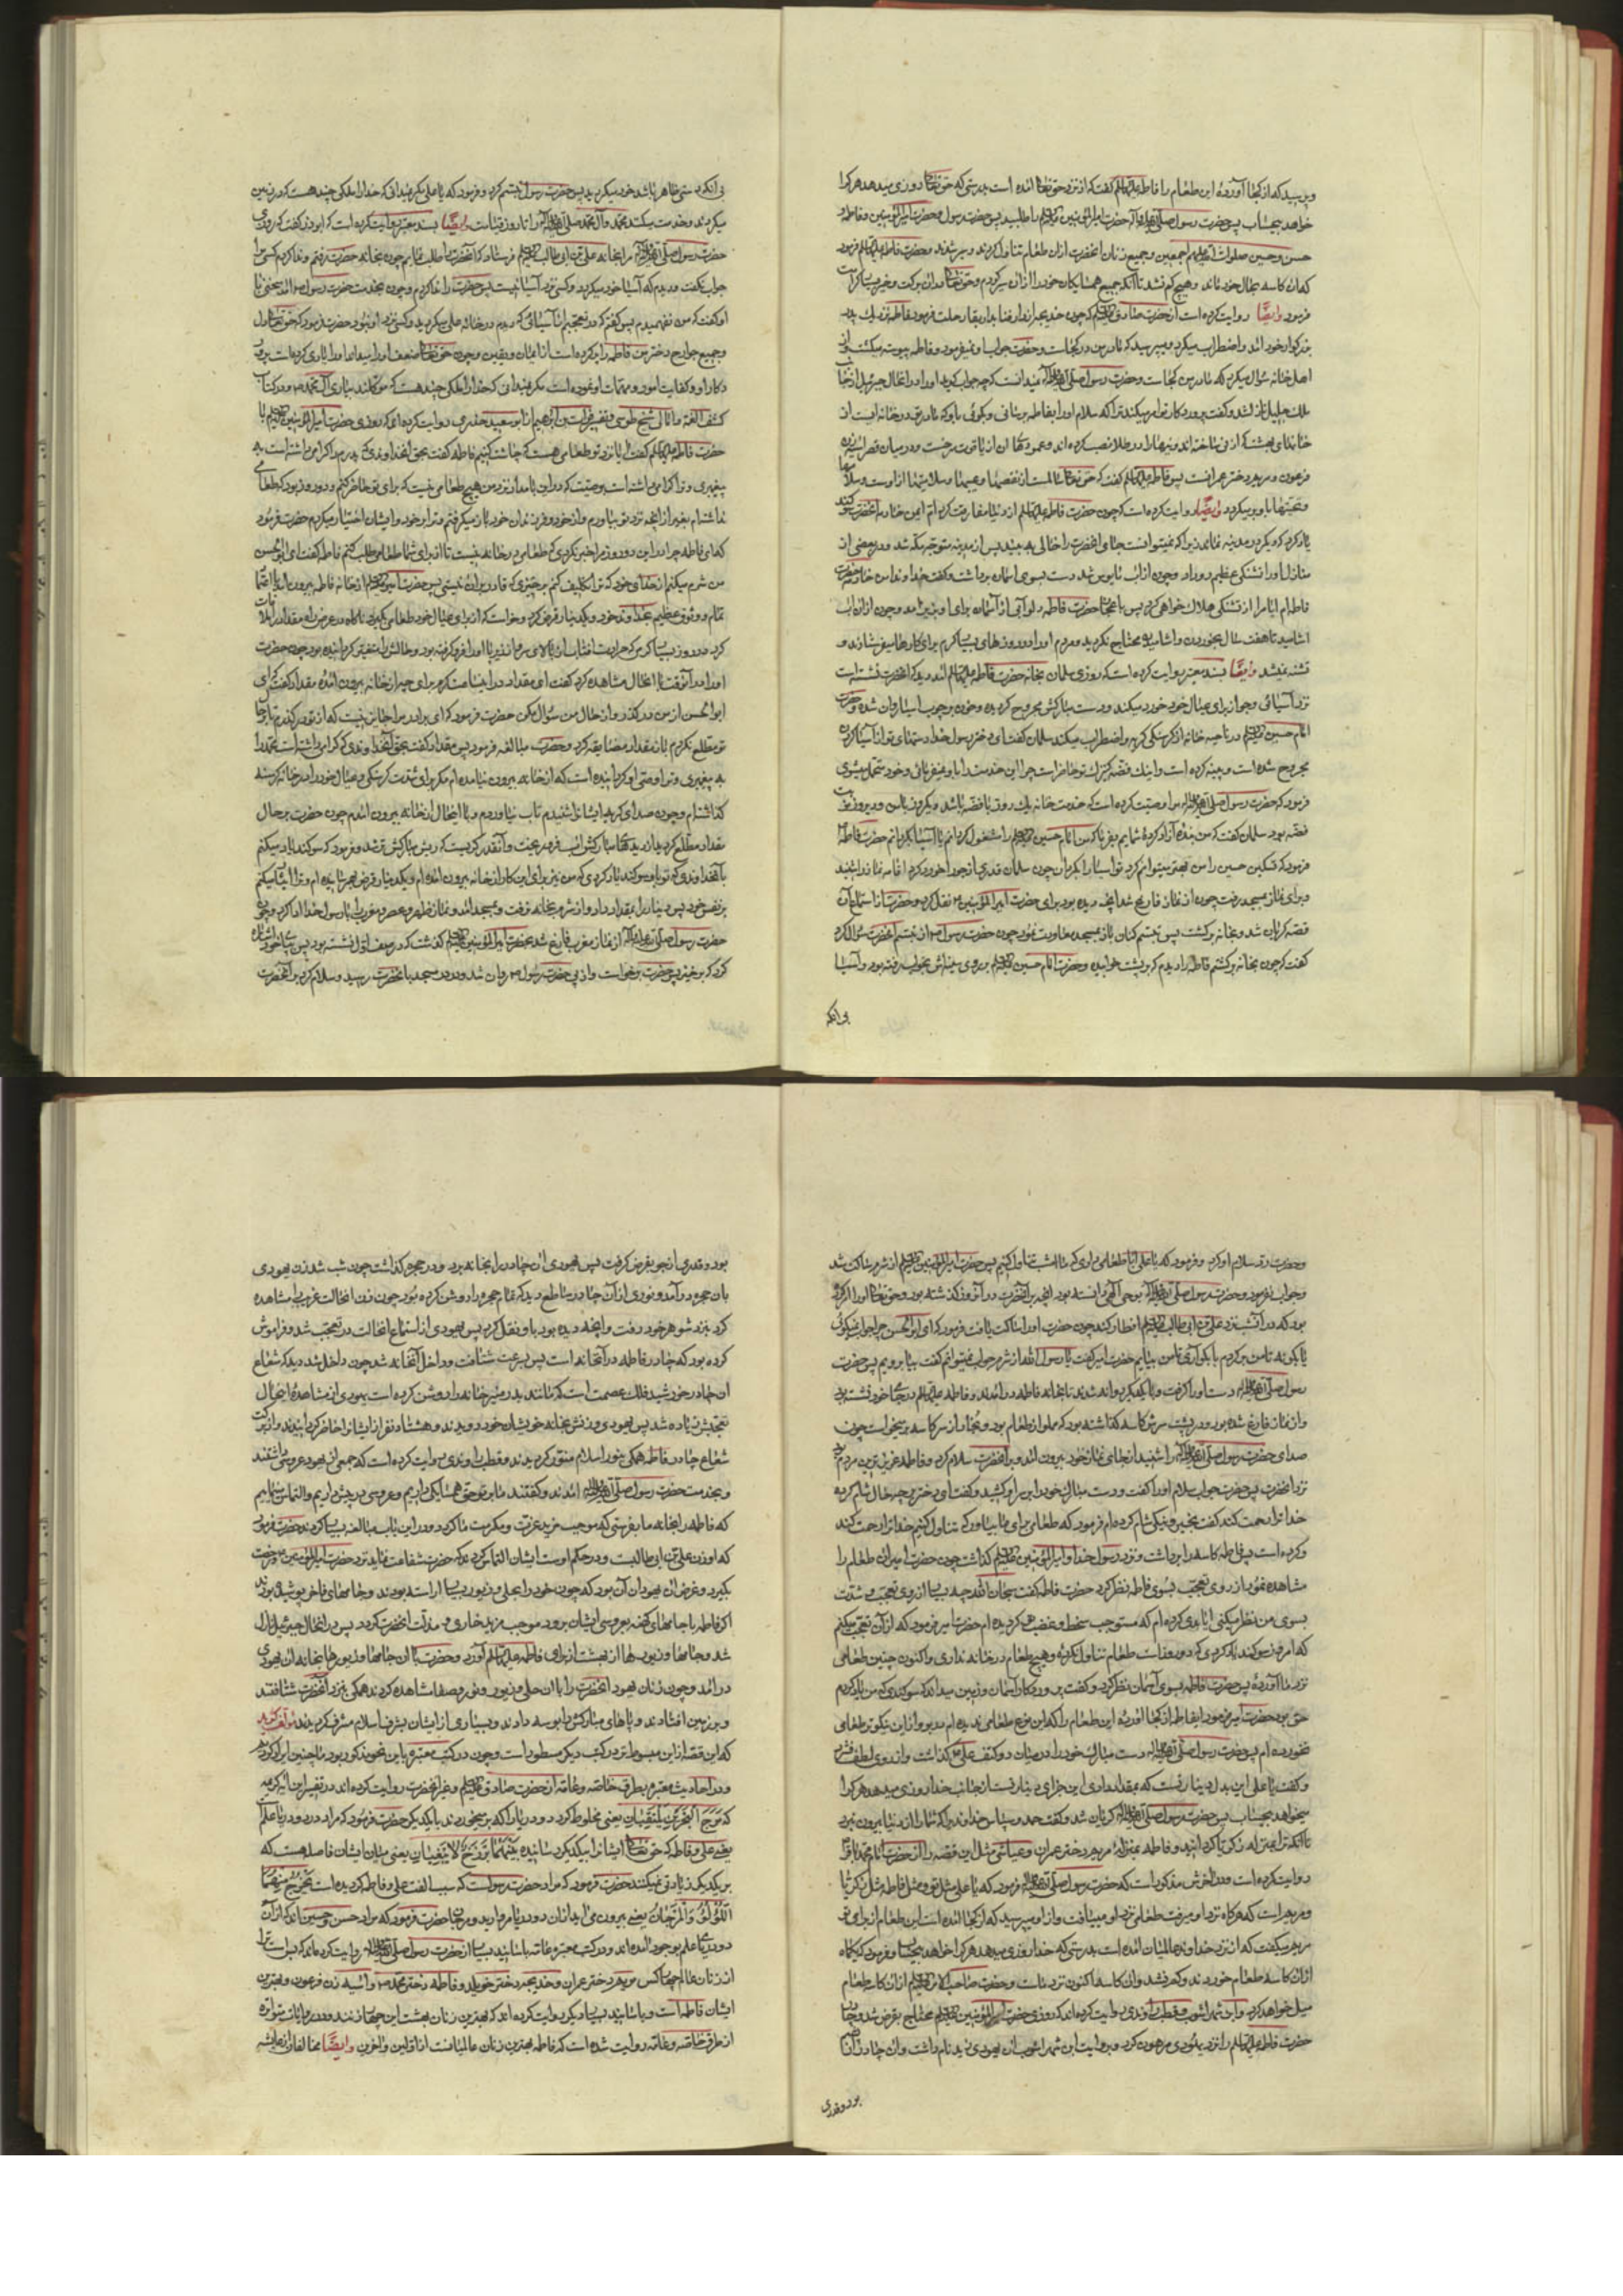 وپرسید که از کجا آوردهٔ این طعام را فاطمه علیها السلم گفت که از نزد حق تعالی آمده است بدرستی که حق تعالی روزی میدهد هر کرا
خواهد بیحساب پس حضرت رسول صلی الله علیه وآله حضرت امیر المؤمنین علیه السلم را طلبید پس حضرت رسول و حضرت امیر المؤمنین و فاطمه و
حسن و حسین صلوات الله علیهم اجمعین و جمیع زنان آنحضرت ازان طعام تناول کردند و سیر شدند و حضرت فاطمه علیها السلم فرمود
که آن کاسه بحال خود ماند و هیچ کم نشد تا آنکه جمیع همسایکان خود را ازان سیر کردم و حق تعالی دران برکت و خیر بسیار کرامت
فرمود وایضًا روایت کرده است از حضرت صادق علیه السلم که چون خدیجه از دار فنا بدار بقا رحلت فرمود فاطمه نزدیك پدر
بزرکوار خود آمد و اضطراب میکرد و میپرسید که مادر من در کجاست و حضرت جواب او نمیفرمود و فاطمه
اهل خانه سؤال میکرد که مادر من کجاست و حضرت رسول صلی الله علیه وآله نمیدانست که چه جواب کوید او را در انحال جبرئیل از جانب
ملك جلیل نازل شد و کفت پروردکار تو امر میکند ترا که سلام او را بفاطمه برسانی و بکوئی باو که مادر تو در خانه ایست از
خانهای بهشت که از نی ساخته اند و نیهارا در طلا نصب کرده اند و عمودهای ان از یاقوت سرخست و در میان قصر اسیه زن
فرعون و مریم دختر عمرانست پس فاطمه علیها السلم کفت که حق تعالی سالمست از نقصها و عیبها و سلامتیها از اوست و سلامها
و تحیتها باو برمیکردد وایضًا روایت کرده است که چون حضرت فاطمه علیها السلم از دنیا مفارقت کرد ام ایمن خادمه آنحضرت سوکند
یاد کرد که دیکر در مدینه نماند زیرا که نمیتوانست جای آنحضرت را خالی به بیند پس از مدینه متوجه مکه شد و در بعضی از
منازل او را تشنکی عظیم رو داد و چون از اب مایوس شد دست بسوی آسمان برداشت و کفت خداوندا من خادمه حضرت
فاطمه ام ایا مرا از تشنکی هلاك خواهی کرد پس باعجاز حضرت فاطمه دلو آبی از آسمان برای او بزیر آمد و چون ازان اب
آشامید تا هفت سال بخوردن و آشامیدن محتاج نکردید و مردم او را در روزهای بسیار کرم برای کارها میفرستادند و
تشنه نمیشد وایضًا بسند معتبر روایت کرده است که روزی سلمان بخانه حضرت فاطمه علیها السلم آمد دید که آنحضرت نشسته است
نزد آسیائی و جو از برای عیال خود خورد میکند و دست مبارکش مجروح کردیده و خون بر چوب اسیا روان شده و حضرت
امام حسین علیه السلم در ناحیه خانه از کرسنکی کریه و اضطراب میکند سلمان کفت ای دختر رسول خدا دستهای تو از آسیا کردن
مجروح شده است و پینه کرده است و اینك فضه کنیزك تو حاضر است چرا این خدمت را باو نمیفرمائی و خود متحمل میشوی
فرمود که حضرت رسول صلی الله علیه وآله مرا وصیت کرده است که خدمت خانه یك روز با فضه باشد و یکروز با من و دیروز نوبت
فضه بود سلمان کفت که من بندهٔ آزاد کردهٔ شمایم بفرما که من امام حسین علیه السلم را مشغول کردانم یا آسیا بکردانم حضرت فاطمه
فرمود که تسکین حسین را من بهتر میتوانم کرد تو اسیا را بکردان چون سلمان قدری از جو را خورد کرد اقامه نماز را شنید
و برای نماز بمسجد رفت چون از نماز فارغ شد انچه دیده بود برای حضرت امیر المؤمنین نقل کرد و حضرت از استماع آن
قصه کریان شد و بخانه برکشت پس تبسم کنان باز بمسجد معاودت نمود چون حضرت رسول از تبسم آنحضرت سؤال کرد
کفت که چون بخانه برکشتم فاطمه را دیدم که بر پشت خوابیده و حضرت امام حسین علیه السلم بر روی سینه اش بخواب رفته بود و آسیا
بی آنکه
بی آنکه دستی ظاهر باشد خود میکردید پس حضرت رسول تبسم کرد و فرمود که یا علی مکر نمیدانی که خدا را ملکی چند هست که در زمین
میکردند و خدمت میکنند محمد و آل محمد صلی الله علیه وآله را تا روز قیامت وایضًا بسند معتبر روایت کرده است که ابوذر کفت که روزی
حضرت رسول صلی الله علیه وآله مرا بخانه علی بن ابی طالب علیه السلم فرستاد که آنحضرت را طلب نمایم چون بخانه حضرت رفتم و ندا کردم کسی مرا
جواب نکفت و دیدم که آسیا خود میکردد و کسی نزد آسیا نیست پس حضرت را ندا کردم و چون بخدمت حضرت رسول آمد سخنی با
او کفت که من نفهمیدم پس کفتم که در تعجبم از آسیائی که دیدم در خانه علی میکردید و کسی نزد او نبود حضرت فرمود که حق تعالی دل
و جمیع جوارح دختر من فاطمه را پر کرده است از ایمان و یقین و چون حق تعالی ضعف او را میداند او را یاری کرده است بر
کار او و کفایت امور و مهمات او نموده است مکر نمیدانی که خدا را ملکی چند هست که موکلند بیاری آل محمد ودر کتاب
کشف الغمه و امالی شیخ طوسی و تفسیر فرات بن ابرهیم از ابو سعید خدری روایت کرده اند که روزی حضرت امیر المؤمنین علیه السلم با
حضرت فاطمه علیها السلم کفت ایا نزد تو طعامی هست که چاشت کنیم فاطمه کفت بحق آنخداوندی که پدرم را کرامی داشته است به
پیغمبری و ترا کرامی داشته است بوصیت که در این بامداد نزد من هیچ طعامی نیست که برای تو حاضر کنم و دو روز بود که طعامی
نداشته ام بغیر از انچه نزد تو بیاورم و از خود و فرزندان خود باز میکرفتم و ترا بر خود و ایشان اختیار میکردم حضرت فرمود
که ای فاطمه چرا در این دو روز مرا خبر نکردی که طعامی در خانه نیست تا از برای شما طعامی طلب کنم فاطمه کفت ای ابو الحسن
من شرم میکنم از خدای خود که ترا تکلیف کنم بر چیزی که قادر بران نیستی پس حضرت امیر علیه السلم از خانه فاطمه بیرون آمد با اعتماد
تمام و وثوق عظیم بخداوند خود و یکدینار قرض کرد و خواست که از برای عیال خود طعامی بکیرد ناکاه در عرض راه مقداد را ملاقات
کرد در روز بسیار کرمی که حرارت افتاب از بالای سر و از زیر پا او را فرو کرفته بود و حالش را متغیر کردانیده بود چون حضرت
او را در آنوقت با انحال مشاهده کرد کفت ای مقداد در این ساعت کرم برای چه از خانه بیرون آمدهٔ مقداد کفت که ای
ابو الحسن از من در کذر و از حال من سؤال مکن حضرت فرمود که ای برادر مرا جایز نیست که از تو درکذرم تا بر حال
تو مطلع نکردم باز مقداد مضایقه کرد و حضرت مبالغه فرمود پس مقداد کفت بحق آنخداوندی که کرامی داشته است محمد را
به پیغمبری و ترا وصی او کردانیده است که از خانه بیرون نیامده ام مکر برای شدت کرسنکی و عیال خود را در خانه کرسنه
کذاشته ام و چون صدای کریه ایشانرا شنیدم تاب نیاوردم و با اینحال از خانه بیرون آمدم چون حضرت بر حال
مقداد مطلع کردید از دیدهای مبارکش اب فرو ریخت و آنقدر کریست که ریش مبارکش تر شد و فرمود که سوکند یاد میکنم
بانخداوندی که تو باو سوکند یاد کردی که من نیز برای این کار از خانه بیرون آمده ام و یکدینار قرض بهم رسانیده ام و ترا ایثار میکنم
بر نفس خود پس دینار را بمقداد داد و از شرم بخانه نرفت و بمسجد آمد و نماز ظهر و عصر و مغرب را با رسول خدا ادا کرد و چون
حضرت رسول صلی الله علیه وآله از نماز مغرب فارغ شد بحضرت امیر المؤمنین علیه السلم کذشت که در صف اول نشسته بود پس بپای خود اشاره
کرد که برخیز پس حضرت برخواست و از پی حضرت رسول روان شد و در در مسجد بانحضرت رسید و سلام کرد بر آنحضرت
وحضرت رد سلام او کرد و فرمود که یا علی ایا طعامی داری که ما امشب تناول کنیم پس حضرت امیر المؤمنین علیه السلم از شرم ساکت شد
و جواب نفرمود و حضرت رسول صلی الله علیه وآله بوحی آلهی دانسته بود انچه بر آنحضرت در آنروز کذشته بود و حق تعالی او را امر کرده
بود که در آنشب نزد علی بن ابی طالب علیه السلم افطار کند چون حضرت او را ساکت یافت فرمود که ای ابو الحسن چرا جواب نمیکوئی
یا بکو نه تا من برکردم یا بکو آری تا من بیایم حضرت امیر کفت یا رسول الله از شرم جواب نمیتوانم کفت بیا برویم پس حضرت
رسول صلی الله علیه وآله دست او را کرفت و با یکدیکر روانه شدند تا بخانه فاطمه در آمدند و فاطمه علیها السلم در جای نماز خود نشسته بود
و از نماز فارغ شده بود و در پشت سرش کاسه کذاشته بود که مملو از طعام بود و بخار از سر کاسه برمیخواست چون
صدای حضرت رسول صلی الله علیه وآله را شنید از جای نماز خود بیرون آمد و بر آنحضرت سلام کرد و فاطمه عزیز ترین مردم بود
نزد آنحضرت پس حضرت جواب سلام او را کفت و دست مبارك خود را بر سر او کشید و کفت ای دختر بچه حال شام کردهٔ
خدا ترا رحمت کند کفت بخیر و نیکی شام کرده ام فرمود که طعامی برای ما بیاور که تناول کنیم خدا ترا رحمت کند
و کرده است پس فاطمه کاسه را برداشت و نزد رسول خدا و امیر المؤمنین علیهم السلم کذاشت چون حضرت امیر آن طعام را
مشاهده نمود از روی تعجب بسوی فاطمه نظر کرد حضرت فاطمه کفت سبحان الله چه بسیار از روی تعجب و شدت
بسوی من نظر میکنی ایا بدی کرده ام که مستوجب سخط و غضب شما کردیده ام حضرت امیر فرمود که از آن تعجب میکنم
که امروز سوکند یاد کردی که دو روز است طعام تناول نکردهٔ و هیچ طعام در خانه نداری و اکنون چنین طعامی
نزد ما آوردهٔ پس حضرت فاطمه بسوی آسمان نظر کرد و کفت پروردکار آسمان و زمین میداند که سوکندی که من یاد کردم
حق بود حضرت امیر فرمود ایفاطمه از کجا آوردهٔ این طعام را که این نوع طعامی ندیده ام و بو از این نیکوتر طعامی
نخورده ام پس حضرت رسول صلی الله علیه وآله دست مبارك خود را در میان دو کتف علی کذاشت و از روی لطف فشرد
و کفت یا علی این بدل دینار تست که بمقداد دادی این جزای دینار تست از جانب خدا و خدا روزی میدهد هر کرا
میخواهد بیحساب پس حضرت رسول صلی الله علیه وآله کریان شد و کفت حمد و سپاس خداوندیرا که شما را از دنیا بیرون نبرد
تا آنکه ترا بمنزله زکریا کردانید و فاطمه بمنزله مریم دختر عمران و عیاشی مثل این قصه را از حضرت امام محمد باقر
روایت کرده است و در آخرش مذکور است که حضرت رسول صلی الله علیه وآله فرمود که یا علی مثل تو و مثل فاطمه مثل زکریا
و مریم است که هرکاه نزد او میرفت طعامی نزد او مییافت و از او میپرسید که از کجا آمده است این طعام از برای تو
مریم میکفت که از نزد خداوند عالمیان آمده است بدرستی که خدا روزی میدهد هر کرا خواهد بیحساب و فرمود که یکماه
ازان کاسه طعام خوردند و کم نشد و ان کاسه اکنون نزد ماست و حضرت صاحب الامر علیه السلم ازان کاسه طعام
میل خواهد کرد وابن شهر اشوب و قطب راوندی روایت کرده اند که روزی حضرت امیر المؤمنین علیه السلم محتاج بقرض شد و چادر
حضرت فاطمه علیها السلم را نزد یهودی مرهون کرد و بروایت ابن شهر اشوب ان یهودی زید نام داشت و ان چادر از
بود و قدری
بود و قدری از جو بقرض کرفت پس یهودی ان چادر را بخانه برد و در حجره کذاشت چون شب شد زن یهودی
بان حجره در آمد و نوری از آن چادر ساطع دید که تمام حجره را روشن کرده بود چون زن انحالت غریب را مشاهده
کرد بنزد شوهر خود رفت و آنچه دیده بود باو نقل کرد پس یهودی از استماع انحالت در تعجب شد و فراموش
کرده بود که چادر فاطمه در آنخانه است پس بسرعت شتافت و داخل آنخانه شد چون داخل شد دید که شعاع
ان چادر خورشید فلك عصمت است که مانند بدر منیر خانه را روشن کرده است یهودی از مشاهدهٔ اینحال
تعجبش زیاده شد پس یهودی و زنش بخانه خویشان خود دویدند و هشتاد نفر از ایشانرا حاضر کردانیدند و از برکت
شعاع چادر فاطمه همکی بنور اسلام منور کردیدند وقطب راوندی روایت کرده است که جمعی از یهود عروسی داشتند
و بخدمت حضرت رسول صلی الله علیه وآله آمدند و کفتند ما بر تو حق همسایکی داریم و عروسی در پیش داریم و التماس مینمایم
که فاطمه را بخانه ما بفرستی که موجب مزید عزت و مکرمت ما کردد و در این باب مبالغه بسیار کردند حضرت فرمود
که او زن علی بن ابی طالبست و در حکم اوست ایشان التماس کردند که حضرت شفاعت نماید نزد حضرت امیر المؤمنین و رخصت
بکیرد و غرض ان یهودان آن بود که چون خود را بحلی و زیور بسیار اراسته بودند و جامهای فاخر پوشیده بودند
اکر فاطمه با جامهای کهنه بعروسی ایشان برود موجب مزید خاری و مذلت آنحضرت کردد پس در انحال جبرئیل نازل
شد و جامها و زیورها از بهشت از برای فاطمه علیها السلم آورد و حضرت با ان جامها و زیورها بخانه ان یهودی
در آمد و چون زنان یهود آنحضرت را با ان حلی و زیور و نور و صفا مشاهده کردند همکی بنزد آنحضرت شتافتند
و بر زمین افتادند و پاهای مبارکش را بوسه دادند و بسیاری از ایشان بشرف اسلام مشرف کردیدند مؤلف کوید
که این قصه از این مبسوطتر در کتب دیکر مسطور است و چون در کتب معتبره باین نحو مذکور بود ما چنین ایراد کردیم
ودر احادیث معتبره بطرق خاصه و عامه از حضرت صادق علیه السلم و غیر آنحضرت روایت کرده اند در تفسیر این آیه کریمه
که مَرَجَ الْبَحْرَیْنِ یَلْتَقِیَانِ یعنی مخلوط کرد دو دریا را که بر میخورند با یکدیکر حضرت فرمود که مراد دو دریای علم
یعنی علی و فاطمه که حق تعالی ایشانرا بیکدیکر رسانیده بَیْنَهُمَا بَرْزَخٌ لَا یَبْغِیَانِ یعنی میان ایشان فاصله هست که
بر یکدیکر زیادتی نمیکنند حضرت فرمود که مراد حضرت رسولست که سبب الفت علی و فاطمه کردیده است یَخْرُجُ مِنْهُمَا
اللُّؤْلُؤُ وَالْمَرْجَانُ یعنی بیرون می آید ازان دو دریا مروارید و مرجان حضرت فرمود که مراد حسن و حسین اند که از آن
دو دریای علم بوجود آمده اند ودر کتب معتبره عامه باسانید بسیار از حضرت رسول صلی الله علیه وآله روایت کرده اند که بس است ترا
از زنان عالم چهار کس مریم دختر عمران و خدیجه دختر خویلد و فاطمه دختر محمد و آسیه زن فرعون و بهترین
ایشان فاطمه است و باسانید بسیار دیکر روایت کرده اند که بهترین زنان بهشت این چهار زنند ودر روایات متواتره
از طرق خاصه و عامه روایت شده است که فاطمه بهترین زنان عالمیانست از اولین و اخرین وایضًا مخالفان از عایشه